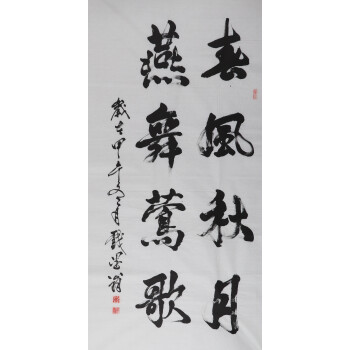 春風秋月
燕舞鶯歌
歲在甲午